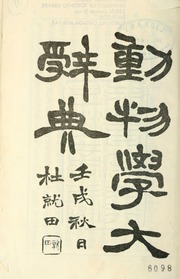 動物學大
辭典
壬戌秋日
杜就田
6098